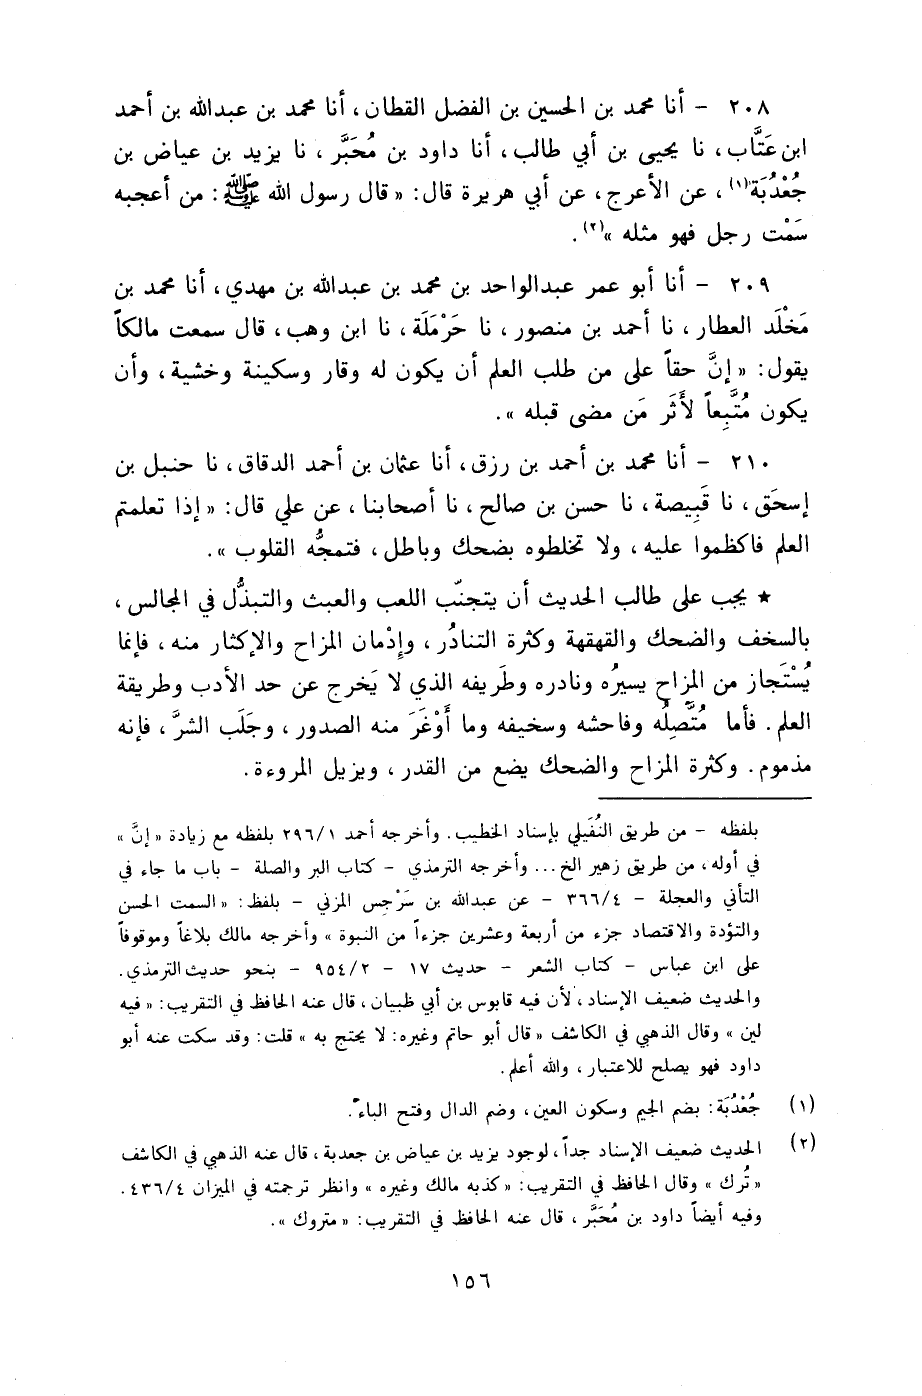 ٢٠٨ - أنا محمد بن الحسين بن الفضل القطان، أنا محمد بن عبدالله بن أحمد
ابن عَتَّاب، نا يحيى بن أبي طالب، أنا داود بن مُحَبَّر، نا يزيد بن عياض بن
جُعْدُبَة(١)، عن الأعرج، عن أبي هريرة قال: « قال رسول الله ﷺ: من أعجبه
سَمْت رجل فهو مثله »(٢).
٢٠٩ - أنا أبو عمر عبدالواحد بن محمد بن عبدالله بن مهدي، أنا محمد بن
مَخْلَد العطار، نا أحمد بن منصور، نا حَرْمَلَة، نا ابن وهب، قال سمعت مالكاً
يقول: « إنَّ حقاً على من طلب العلم أن يكون له وقار وسكينة وخشية، وأن
يكون مُتَّبِعاً لأَثَر مَن مضى قبله ».
٢١٠ - أنا محمد بن أحمد بن رزق، أنا عثمان بن أحمد الدقاق، نا حنبل بن
إسحَق، نا قَبِيصة، نا حسن بن صالح، نا أصحابنا، عن علي قال: « إذا تعلمتم
العلم فاكظموا عليه، ولا تخلطوه بضحك وباطل، فتمجُّه القلوب ».
★ يجب على طالب الحديث أن يتجنّب اللعب والعبث والتبذُّل في المجالس،
بالسخف والضحك والقهقهة وكثرة التنادُر، وإدْمان المزاح والإكثار منه، فإنما
يُسْتَجاز من المزاح يسيرُه ونادره وطَريفه الذي لا يَخرج عن حد الأدب وطريقة
العلم. فأما مُتَّصِلُه وفاحشه وسخيفه وما أَوْغَرَ منه الصدور، وجَلَب الشرَّ، فإنه
مذموم. وكثرة المزاح والضحك يضع من القدر، ويزيل المروءة.
بلفظه - من طريق النُفَيلي بإسناد الخطيب. وأخرجه أحمد ٢٩٦/١ بلفظه مع زيادة « إنَّ »
في أوله، من طريق زهير الخ... وأخرجه الترمذي - كتاب البر والصلة - باب ما جاء في
التأني والعجلة - ٣٦٦/٤ - عن عبدالله بن سَرْجِس المزني - بلفظ: « السمت الحسن
والتؤدة والاقتصاد جزء من أربعة وعشرين جزءاً من النبوة » وأخرجه مالك بلاغاً وموقوفاً
على ابن عباس - كتاب الشعر - حديث ١٧ - ٩٥٤/٢ - بنحو حديث الترمذي.
والحديث ضعيف الإسناد، لأن فيه قابوس بن أبي ظبيان، قال عنه الحافظ في التقريب: « فيه
لين » وقال الذهبي في الكاشف « قال أبو حاتم وغيره: لا يحتج به » قلت: وقد سكت عنه أبو
داود فهو يصلح للاعتبار، والله أعلم.
(١) جُعْدُبَة: بضم الجيم وسكون العين، وضم الدال وفتح الباء.
(٢) الحديث ضعيف الإسناد جداً، لوجود يزيد بن عياض بن جعدبة، قال عنه الذهبي في الكاشف
« تُرك » وقال الحافظ في التقريب: « كذبه مالك وغيره » وانظر ترجمته في الميزان ٤٣٦/٤.
وفيه أيضاً داود بن مُحَبَّر، قال عنه الحافظ في التقريب: « متروك ».
١٥٦